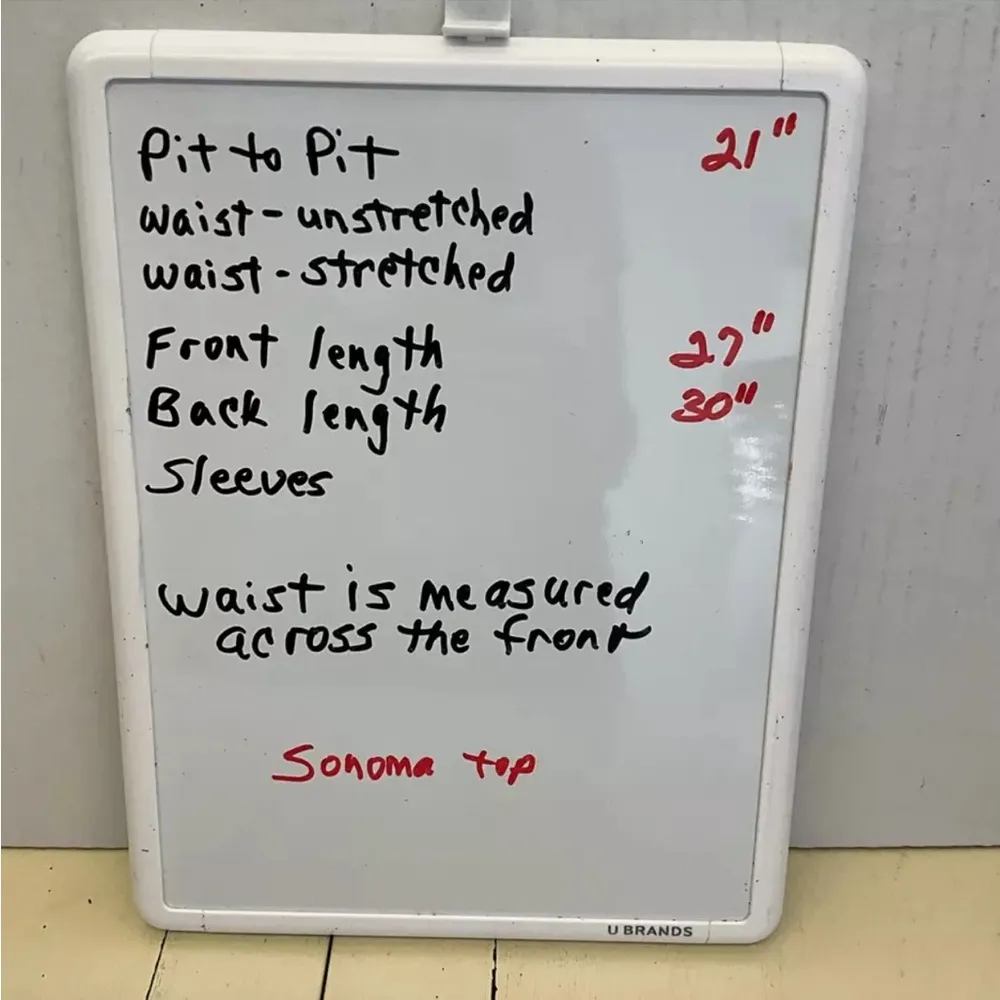 Pit to Pit 21"
waist-unstretched
waist-stretched
Front length 27"
Back length 30"
Sleeves
waist is measured
across the front
Sonoma top
U BRANDS